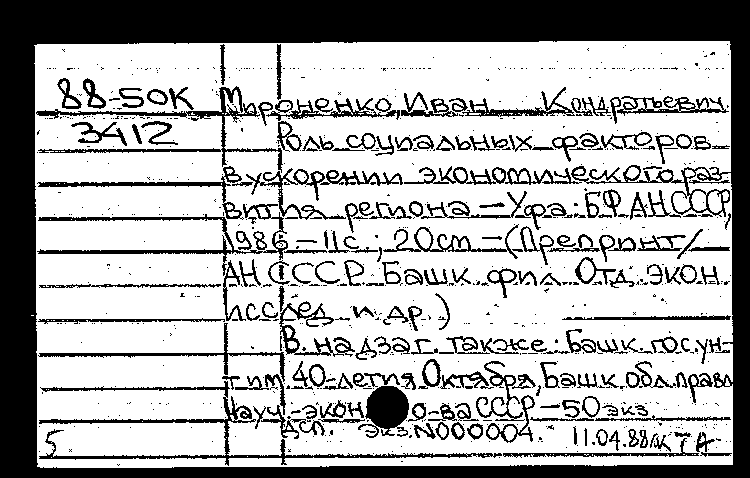 88-50К Мироненко, Иван Кондратьевич
3412 Роль социальных факторов
в ускорении экономического раз-
вития региона — Уфа: БФ АН СССР,
1986 — 11 с.; 20 см — (Препринт /
АН СССР. Башк. фил. Отд. экон.
исслед. и др.)
В. надзаг. также: Башк. гос. ун-
т им. 40-летия Октября, Башк. обл. правл.
Науч.-экон. о-ва СССР — 50 экз.
ДСП. Экз. N000004. 11.04.88
5